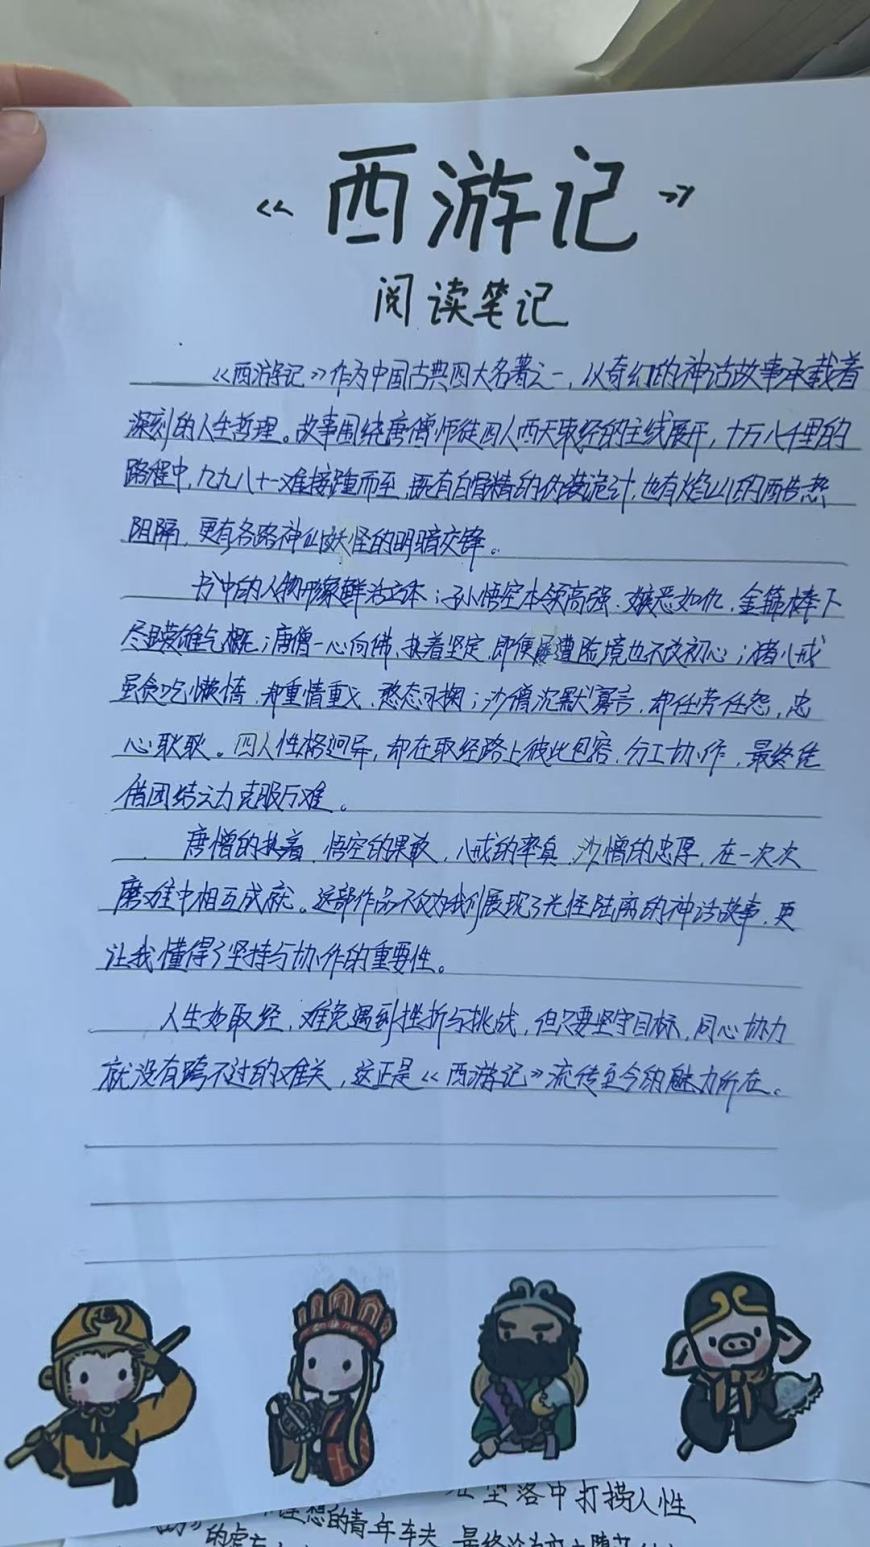 《西游记》
阅读笔记
《西游记》作为中国古典四大名著之一，以奇幻的神话故事承载着
深刻的人生哲理。故事围绕唐僧师徒四人西天取经的主线展开，十万八千里的
路程中，九九八十一难接踵而至，既有白骨精的伪装诡计，也有焰山的酷热
阻隔，更有各路神仙妖怪的明暗交锋。
书中的人物形象鲜活立体；孙悟空本领高强，嫉恶如仇，金箍棒下
尽显英雄气概；唐僧一心向佛，执着坚定，即便屡遭险境也不改初心；猪八戒
虽贪吃懒惰，却重情重义，憨态可掬；沙僧沉默寡言，却任劳任怨，忠
心耿耿。四人性格迥异，却在取经路上彼此包容，分工协作，最终凭
借团结之力克服万难。
唐僧的执着，悟空的果敢，八戒的率真，沙僧的忠厚，在一次次
磨难中相互成就。这部作品不仅为我们展现了光怪陆离的神话故事，更
让我懂得了坚持与协作的重要性。
人生如取经，难免遇到挫折与挑战，但只要坚守目标，同心协力
就没有跨不过的难关，这正是《西游记》流传至今的魅力所在。
坠落中打捞人性
理想的青年车夫，最终沦为